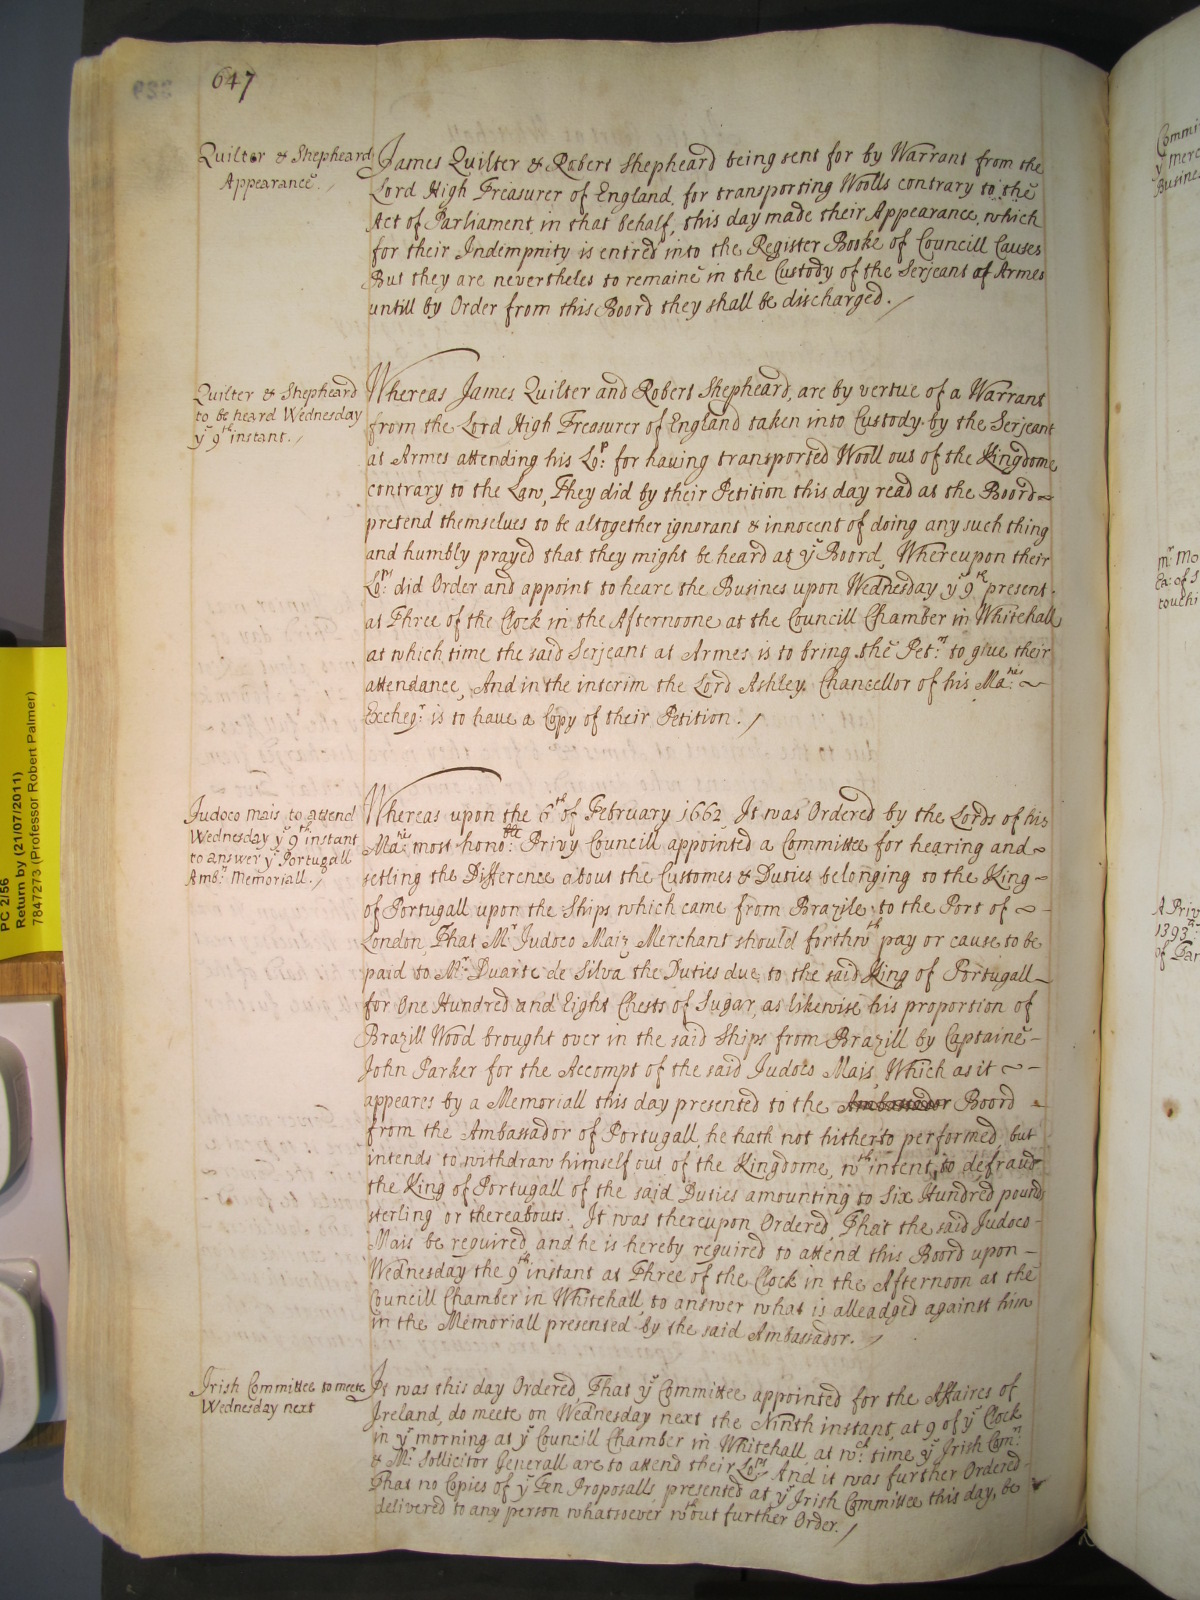 647
Quilter & Shepheard
Appearance.
James Quilter & Robert Shepheard being sent for by Warrant from the
Lord High Treasurer of England, for transporting Woolls contrary to the
Act of Parliament, in that behalf, this day made their Appearance, which
for their Indempnity is entred into the Register Booke of Councill Causes
But they are nevertheles to remaine in the Custody of the Serjeant of Armes
untill by Order from this Boord they shall be discharged.
Quilter & Shepheard
to be heard Wednesday
yᵉ 9ᵗʰ instant.
Whereas James Quilter and Robert Shepheard, are by vertue of a Warrant
from the Lord High Treasurer of England taken into Custody by the Serjeant
at Armes attending his Loᵖ: for having transported Wooll out of the Kingdome
contrary to the Law, They did by their Petition this day read at the Boord
pretend themselues to be altogether ignorant & innocent of doing any such thing
and humbly prayed that they might be heard at yᵉ Boord, Whereupon their
Loᵖˢ: did Order and appoint to heare the Busines upon Wednesday yᵉ 9ᵗʰ present
at Three of the Clock in the Afternoone at the Councill Chamber in Whitehall
at which time the said Serjeant at Armes is to bring the Petʳˢ: to give their
attendance, And in the interim the Lord Ashley Chancellor of his Maᵗⁱᵉˢ:
Excheqʳ: is to haue a Copy of their Petition.
Judoco Mais to attend
Wednesday yᵉ 9ᵗʰ instant
to answer yᵉ Portugall
Ambʳˢ: Memoriall.
Whereas upon the 6ᵗʰ of February 1662 It was Ordered by the Lords of his
Maᵗⁱᵉˢ most honoᵇˡᵉ: Privy Councill appointed a Committee for hearing and
setling the Difference about the Customes & Duties belonging to the King
of Portugall upon the Ships which came from Brazile to the Port of
London, That Mʳ Judoco Maiz Merchant should forthwᵗʰ pay or cause to be
paid to Mʳ Duarte de Silva the Duties due to the said King of Portugall
for One Hundred and Eight Chests of Sugar, as likewise his proportion of
Brazill Wood brought over in the said Ships from Brazill by Captaine
John Parker for the Accompt of the said Judoco Mais, Which as it
appeares by a Memoriall this day presented to the Ambassador Boord
from the Ambassador of Portugall, he hath not hitherto performed, but
intends to withdraw himself out of the Kingdome, wᵗʰ intent to defraud
the King of Portugall of the said Duties amounting to Six Hundred pound
sterling or thereabouts. It was thereupon Ordered, That the said Judoco
Mais be required, and he is hereby required to attend this Boord upon
Wednesday the 9ᵗʰ instant at Three of the Clock in the Afternoon at the
Councill Chamber in Whitehall, to answer what is alleadged against him
in the Memoriall presented by the said Ambassador.
Irish Committee to meete
Wednesday next
It was this day Ordered, That yᵉ Committee appointed for the Affaires of
Ireland, do meete on Wednesday next the Ninth instant, at 9 of yᵉ Clock
in yᵉ morning at yᵉ Councill Chamber in Whitehall, at wᶜʰ: time yᵉ Irish Comʳˢ:
& Mʳ Sollicitor Generall are to attend their Loᵖˢ: And it was further Ordered
That no Copies of yᵉ Ten Proposalls presented at yᵉ Irish Committee this day, be
delivered to any person whatsoever wᵗʰout further Order.
PC 2/56
Return by (21/07/2011)
7847273 (Professor Robert Palmer)
Commi
yᵉ Merc
Busines
Mʳ Mo
touchi
A Priv
1393
of Par